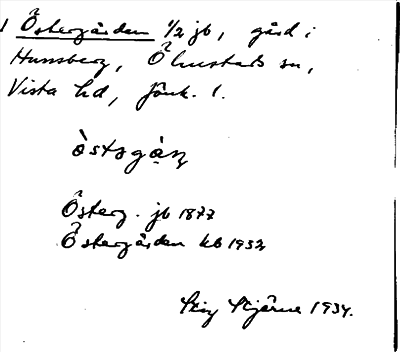 1 Östergården 1/2 jb, gård i
Hunsberg, Ölmstads sn,
Vista hd, Jönk. l.
òstəgàṇ
Österg. jb 1877
Östergården kb 1932
Stig Stjärne 1934.